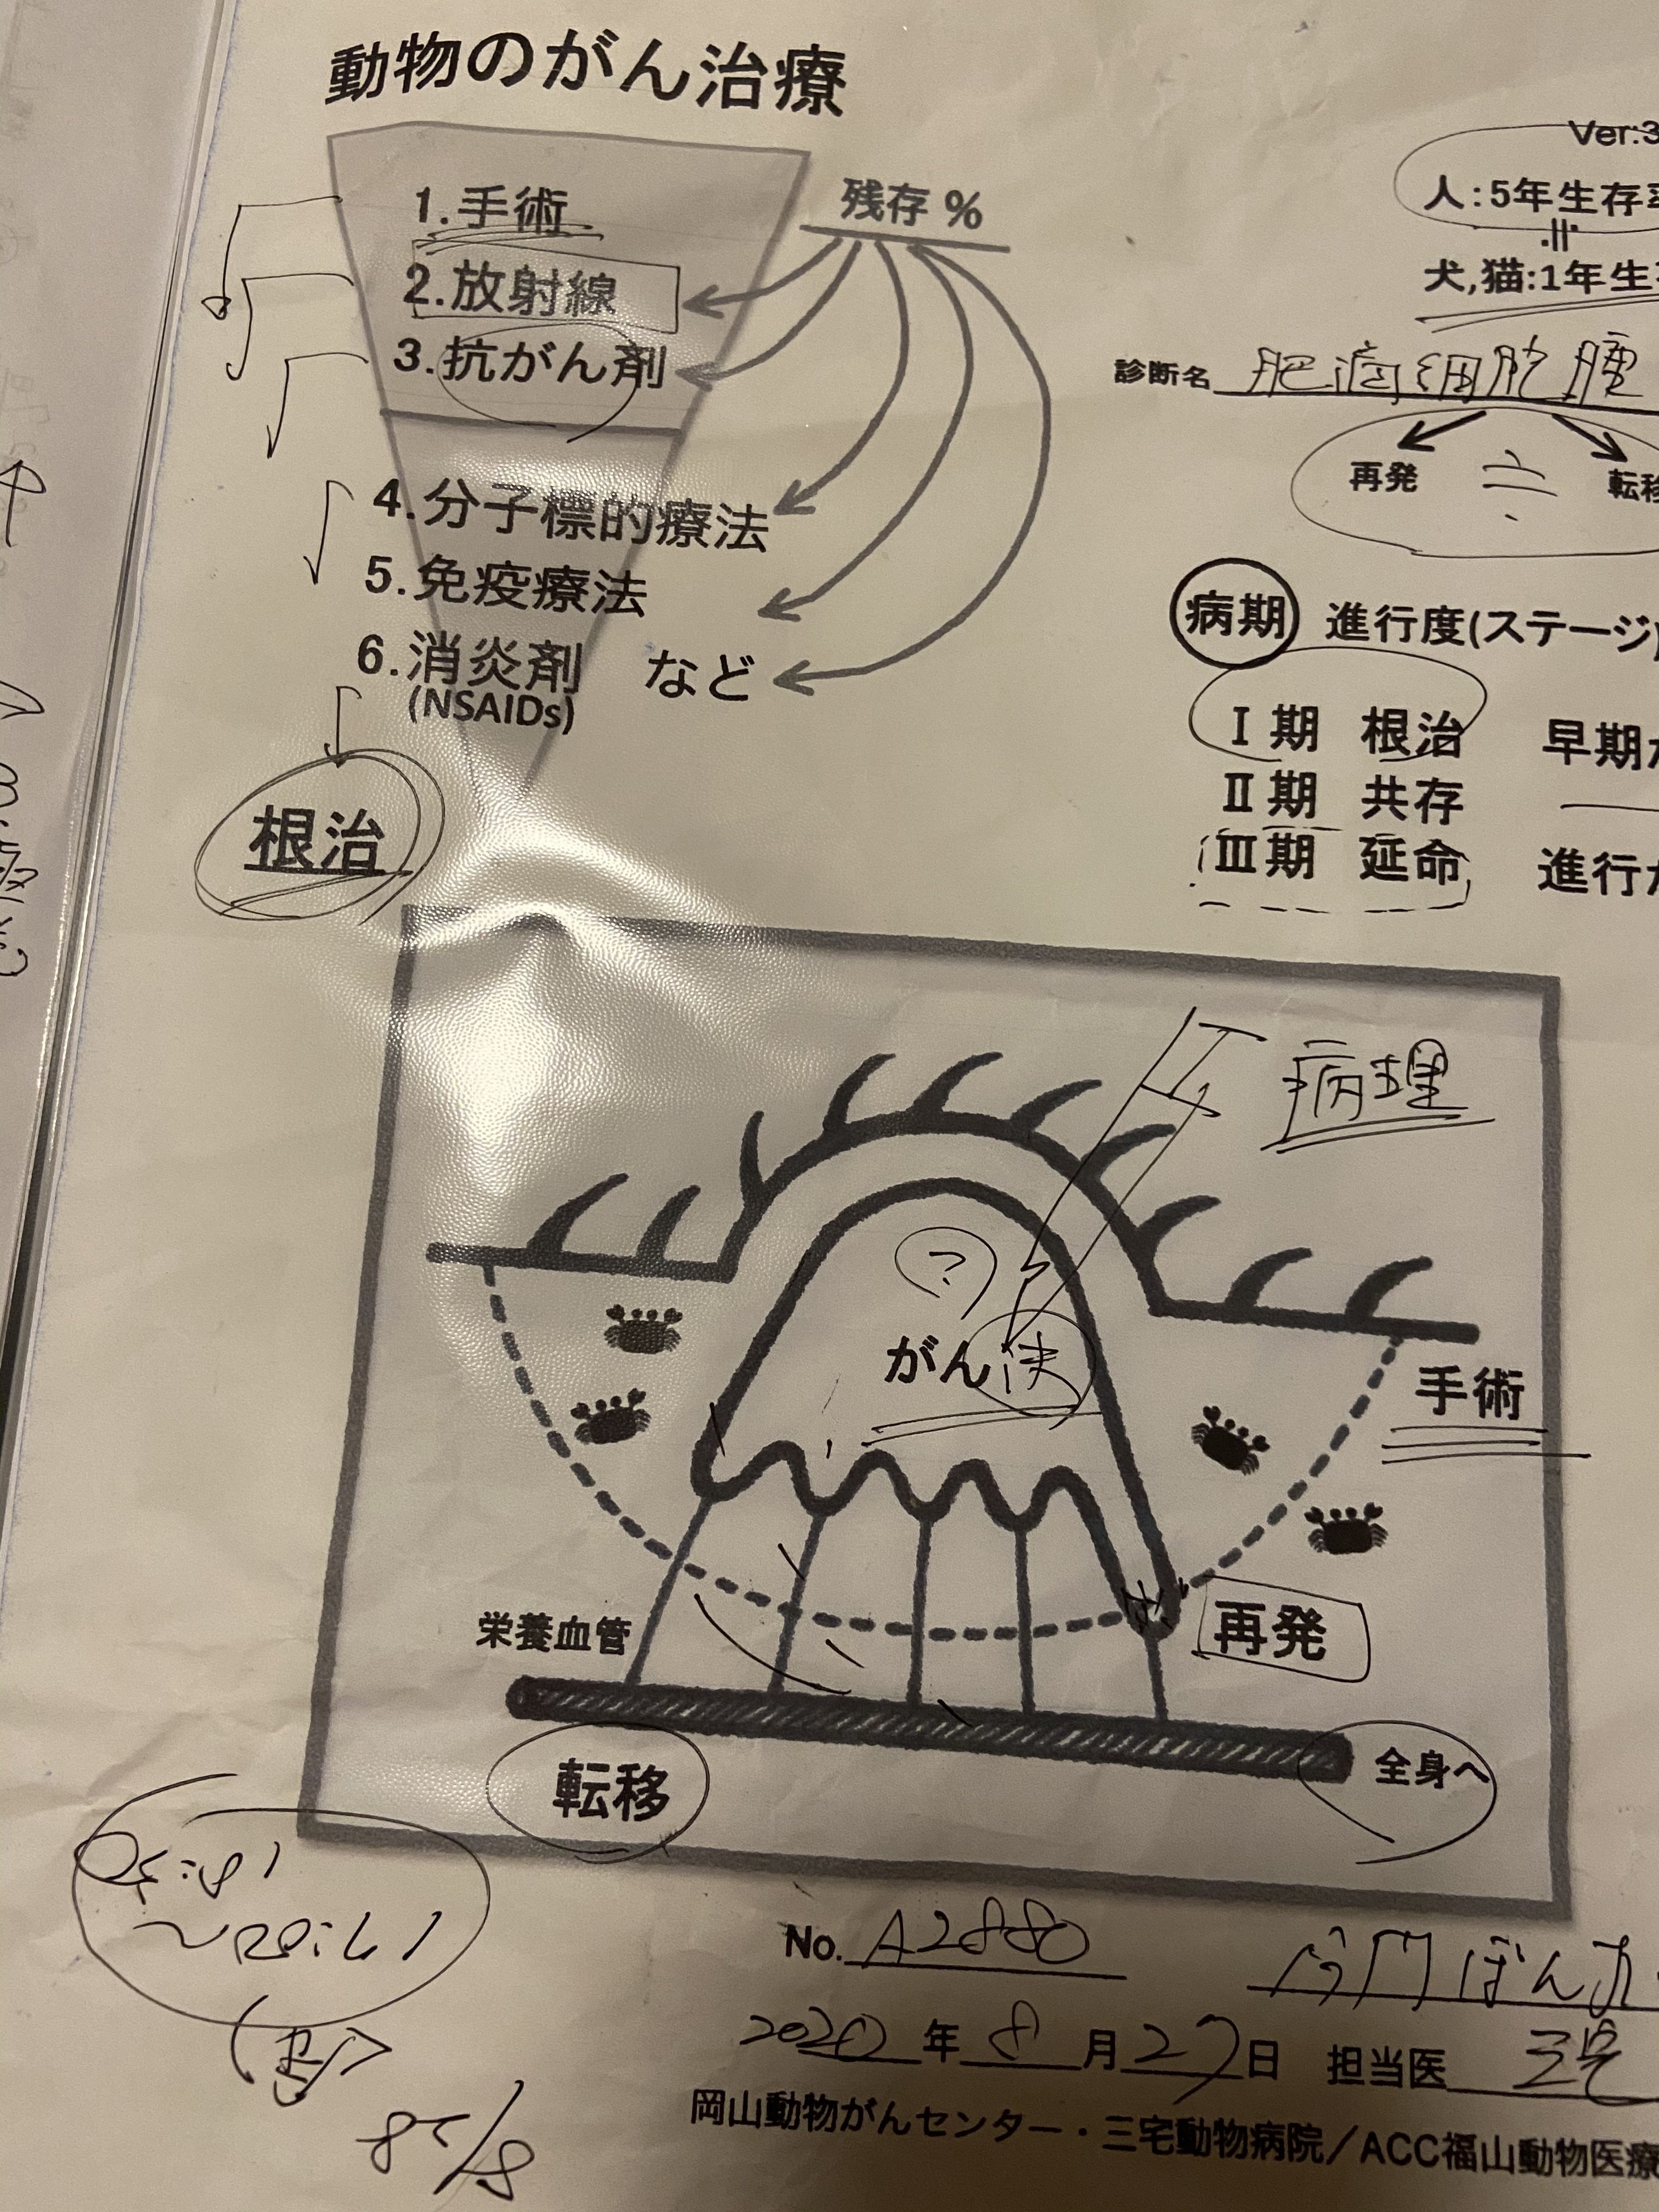 動物のがん治療
1.手術
2.放射線
3.抗がん剤
4.分子標的療法
5.免疫療法
6.消炎剤 など
(NSAIDs)
根治
残存 %
Ver:3
人:5年生存率
犬,猫:1年生
診断名 肥満細胞腫
再発 転移
病期 進行度(ステージ)
Ⅰ期 根治 早期が
Ⅱ期 共存
Ⅲ期 延命 進行が
病理
?
がん
手術
栄養血管
再発
転移
全身へ
No. A2880
ぽん
2020年8月27日 担当医 三宅
岡山動物がんセンター・三宅動物病院/ACC福山動物医療